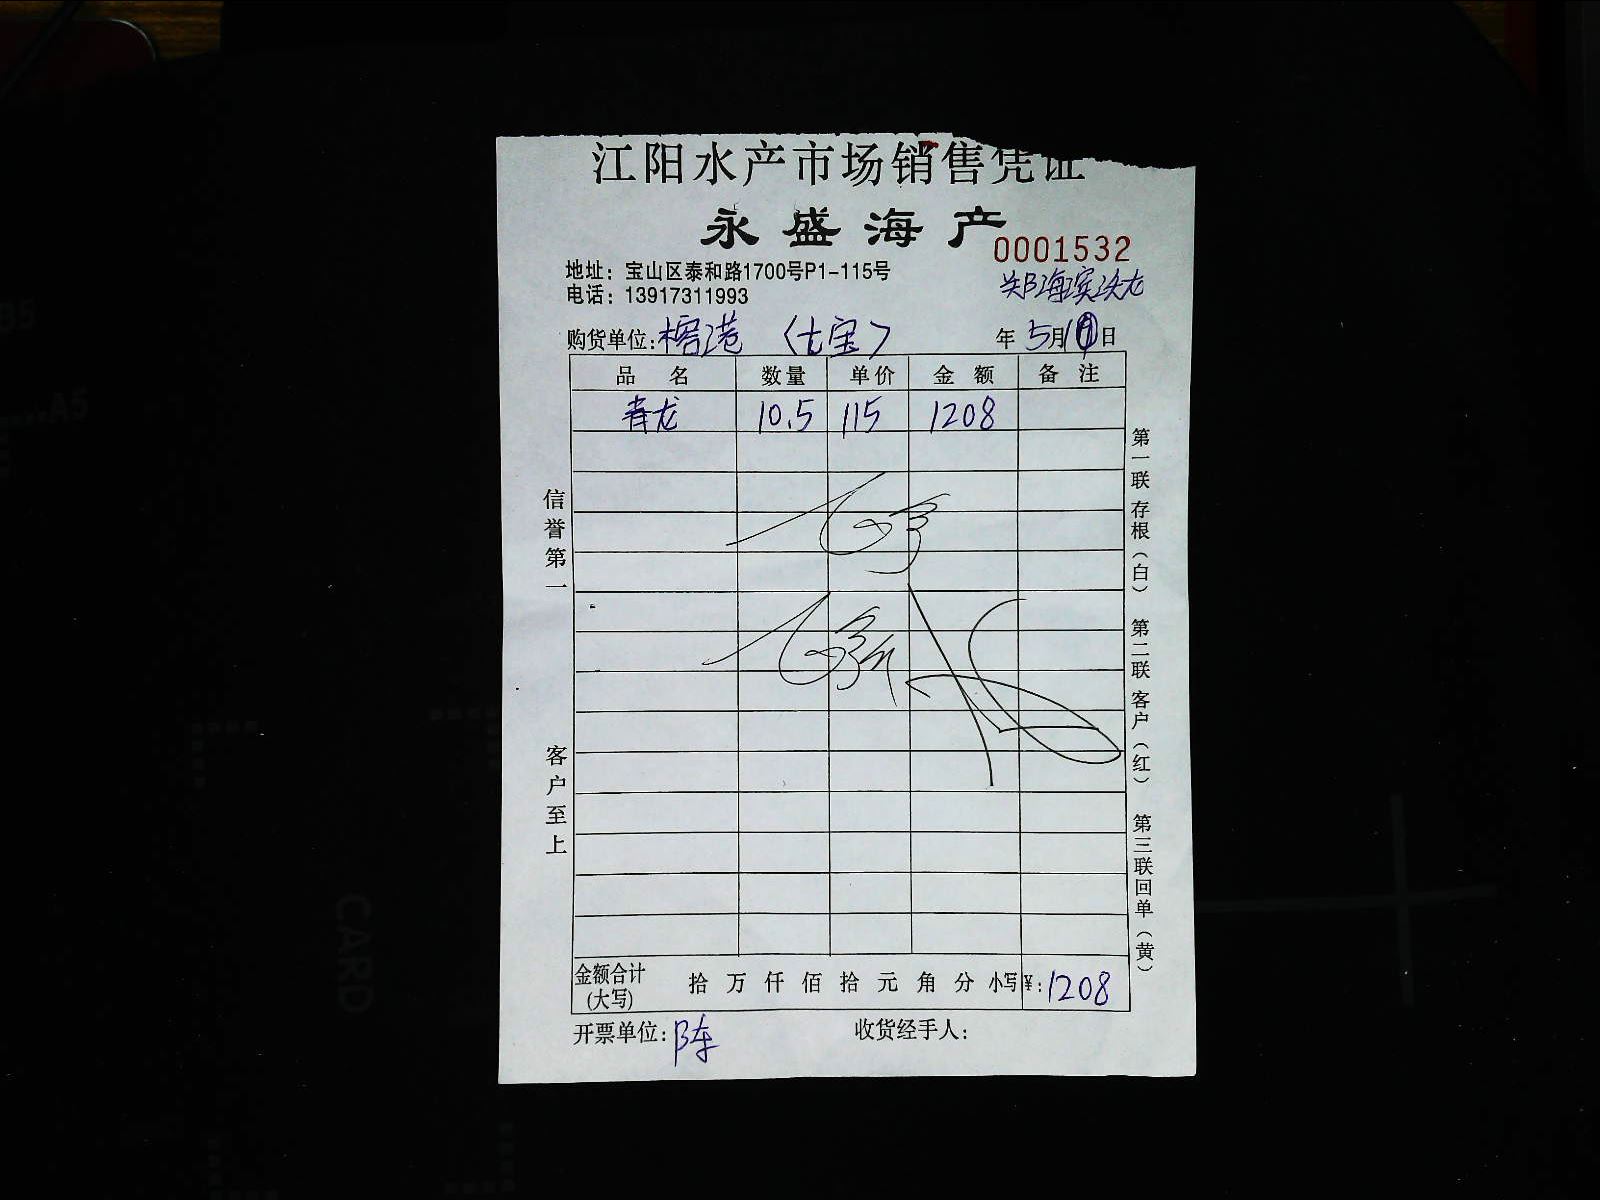 江阳水产市场销售凭证
永盛海产
0001532
地址：宝山区泰和路1700号P1-115号
电话：13917311993
郑海滨汝龙
购货单位：榕港（七宝） 年 5月10日
品 名 数量 单价 金 额 备 注
青龙 10.5 115 1208
信誉第一
客户至上
第一联 存根（白）
第二联 客户（红）
第三联回单（黄）
金额合计(大写) 拾 万 仟 佰 拾 元 角 分 小写¥:1208
开票单位：陈 收货经手人：
B5
A5
CARD